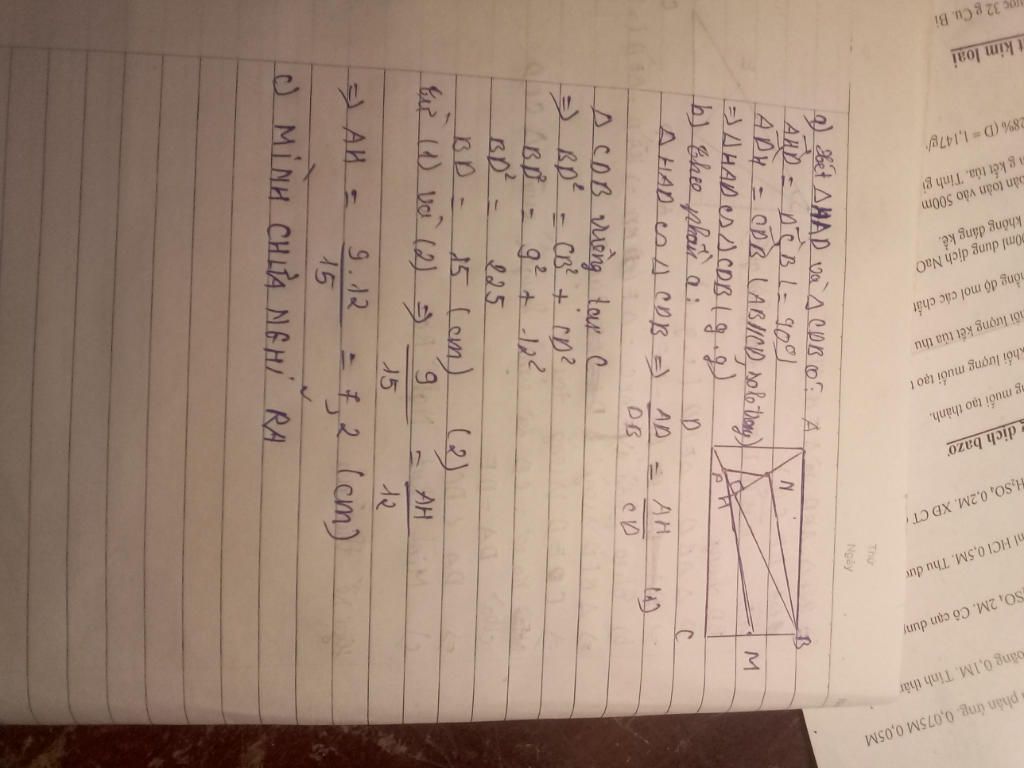 a) Xét △HAD và △CDB có:
AHD = DCB (= 90°)
ADH = CBD (AB//CD,
⇒ △HAD ∽ △CDB (g.g)
A
B
N
D
P
H
M
C
b) Theo phần a:
△HAD ∽ △CDB ⇒ AD/DB = AH/CD (1)
△CDB vuông tại C
⇒ BD² = CB² + CD²
BD² = 9² + 12²
BD² = 225
BD = 15 (cm) (2)
Từ (1) và (2) ⇒ 9/15 = AH/12
⇒ AH = 9.12/15 = 7,2 (cm)
c) MÌNH CHƯA NGHĨ RA
Thứ
Ngày
32 g Cu. Bi
t kim loại
28% (D) = 1,147g/
g kết tủa. Tính g
toàn vào 500m
không đáng kể.
00ml dung dịch NaO
nồng độ mol các chất
khối lượng kết tủa thu
khối lượng muối tạo t
g muối tạo thành.
dịch bazơ
H₂SO₄ 0,2M. XĐ CT
ml HCl 0,5M. Thu dung
SO₄ 2M. Cô cạn dung
bằng 0,1M. Tính thàn
phản ứng. 0,075M 0,05M